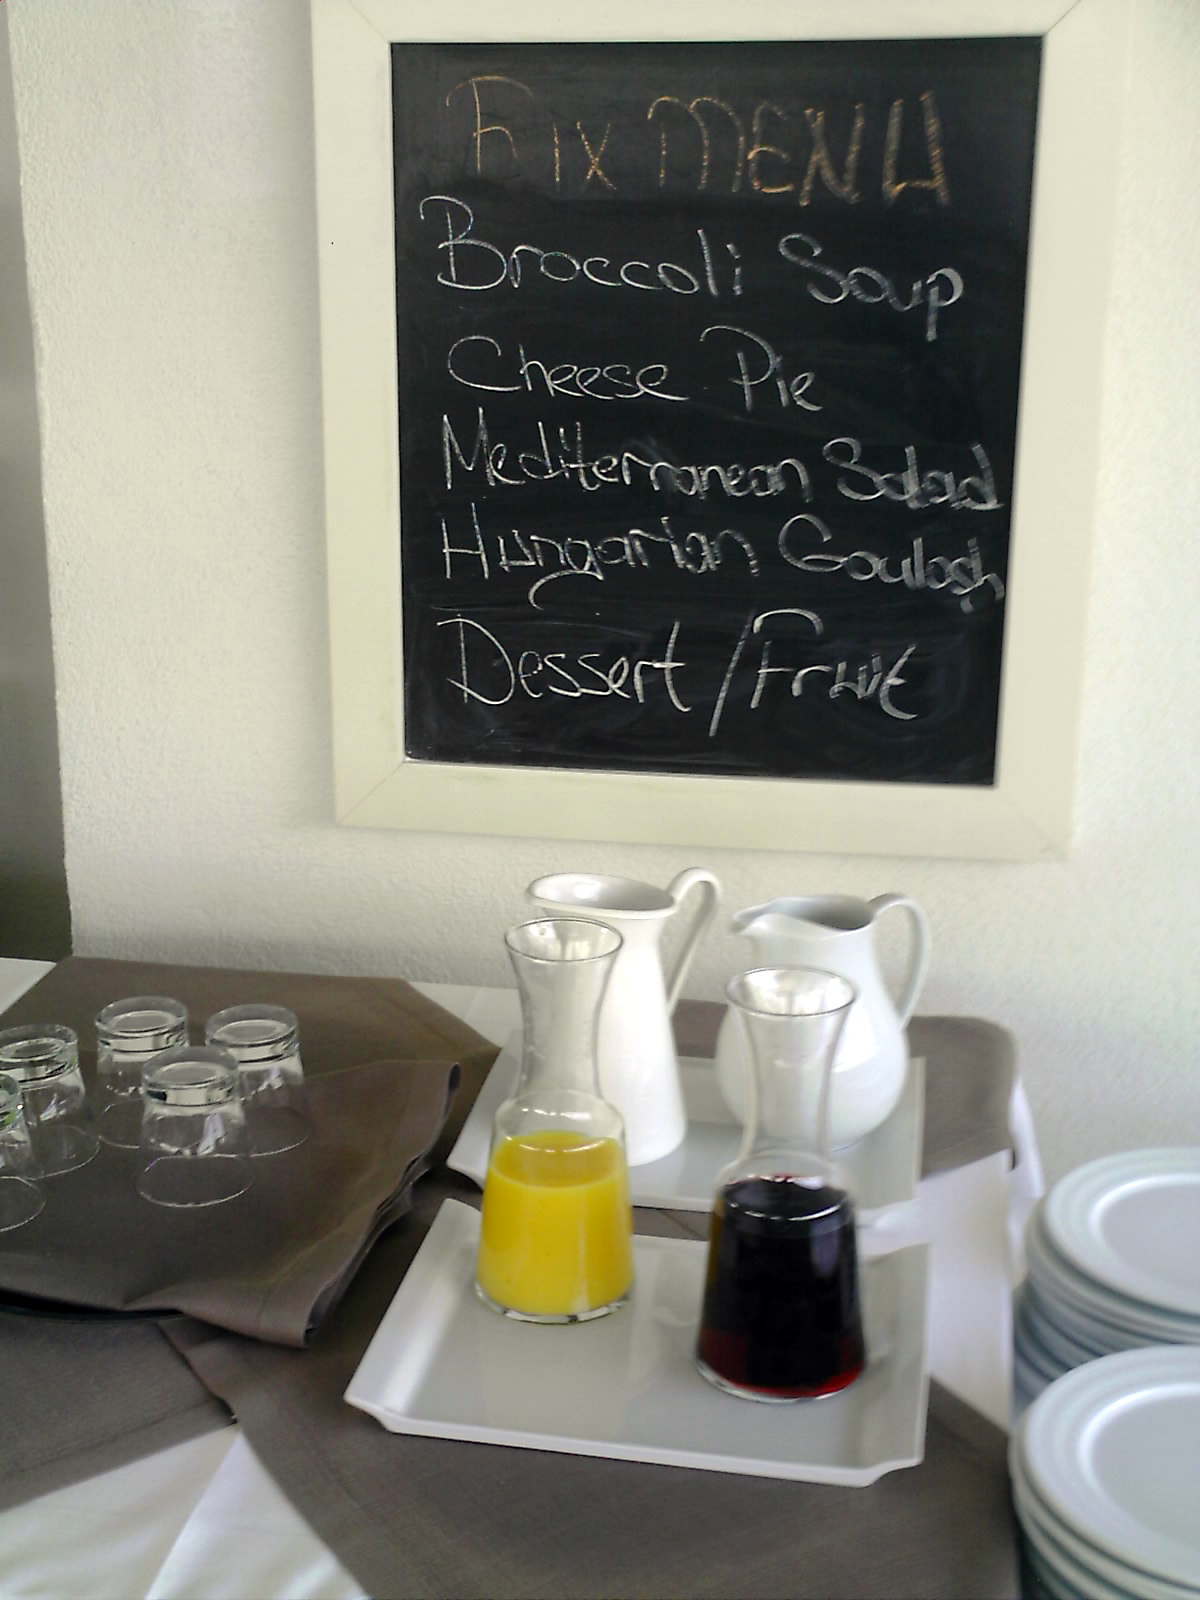 Fix MENU
Broccoli Soup
Cheese Pie
Mediterranean Salad
Hungarian Goulash
Dessert / Fruit